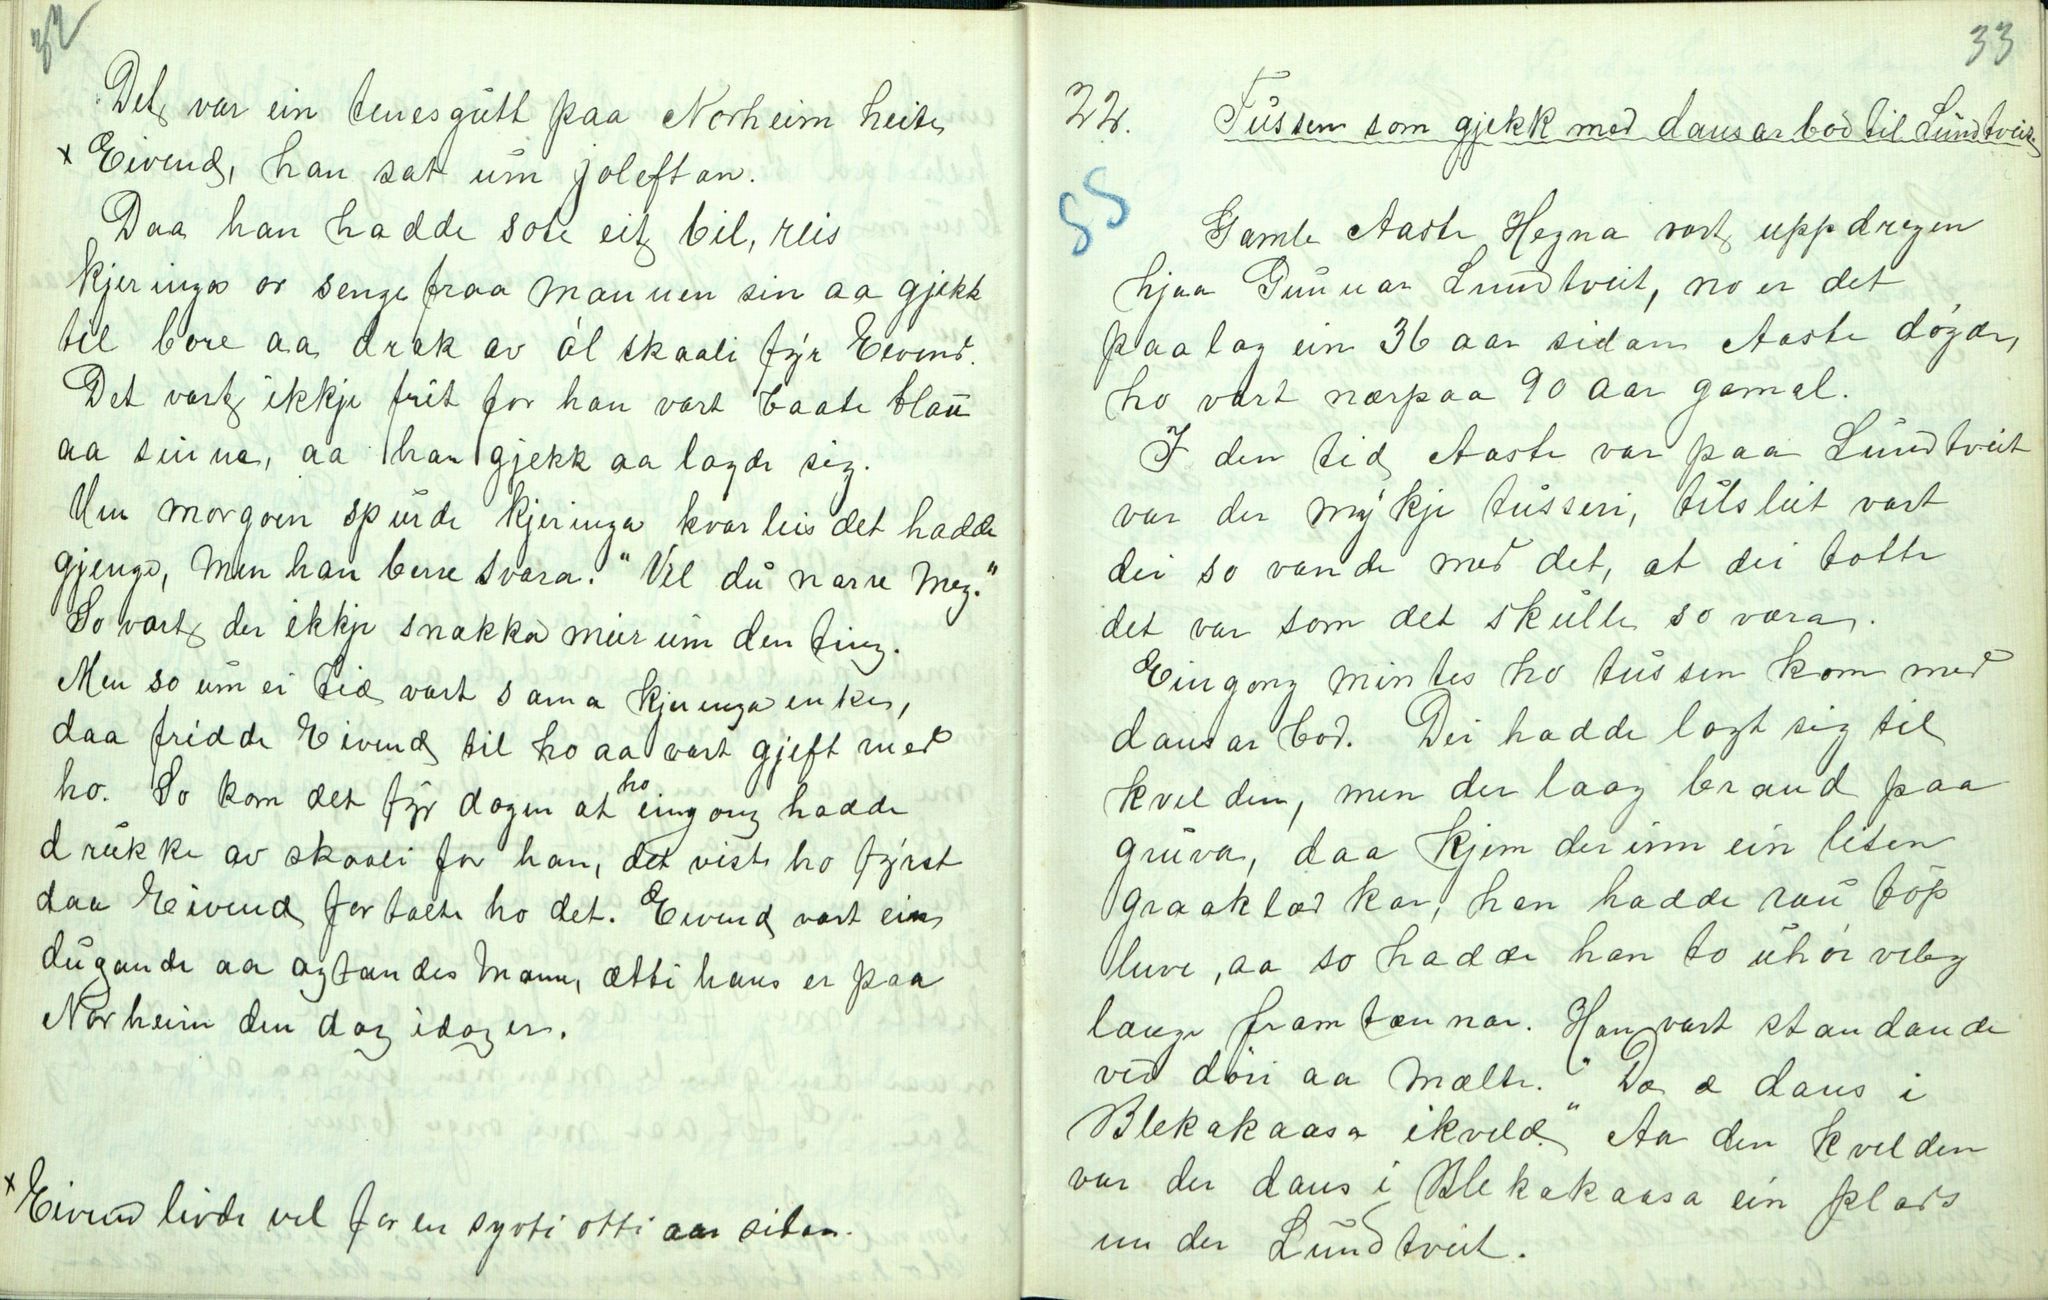 32
Det var ein tenesgutt paa Norheim heite
x Eivend, han sat um joleftan.
Daa han hadde sote eit bil, reis
kjeringa or senge fraa mannen sin aa gjekk
til bore aa drak av ól skaali fyr Eivend.
Det vart ikkje frit for han vart baate blau
aa sinna, aa han gjekk aa lagde sig.
Um morgoen spurde kjeringa kvarleis det hadde
gjenge, men han berre svara. "Vil du narre meg."
So vart der ikkje snakka meir um den ting.
Men so um ei tid vart sama kjeringa enke,
daa fridde Eivend til ho aa vart gjeft med
ho. So kom det fyr dagen at ho eingong hadde
drukke av skaali for han, det viste ho fyrst
daa Eivend fortalte ho det. Eivend vart ein
dugande aa agtandes mann, ætti hans er paa
Norheim den dag idag er.
x Eivend livde vel for en sytti otti aar sidan.
33
22. Tussen som gjekk med dansarbod til Lundtveit.
55
Gamle Aaste Hegna vart uppdregen
hjaa Gunnar Lundtveit, no er det
paalag ein 36 aar sidan Aaste dógde,
ho vart nærpaa 90 aar gamal.
I den tid Aaste var paa Lundtveit
var der mykje tusseri, tilsleit vart
dei so vande med det, at dei totte
det var som det skulle so vara.
Eingong mintes ho tussen kom med
dansarbod. Dei hadde lagt sig til
kvelden, men der laag brand paa
gruva, daa kjem der inn ein liten
graaklæd kar, han hadde rau tóp
luve, aa so hadde han to uhóiveleg
lange framtennar. Han vart standande
ved dóri aa mælte. "Dæ æ dans i
Blekakaasa ikveld." Aa den kvelden
var der dans i Blekakaasa ein plads
under Lundtveit.